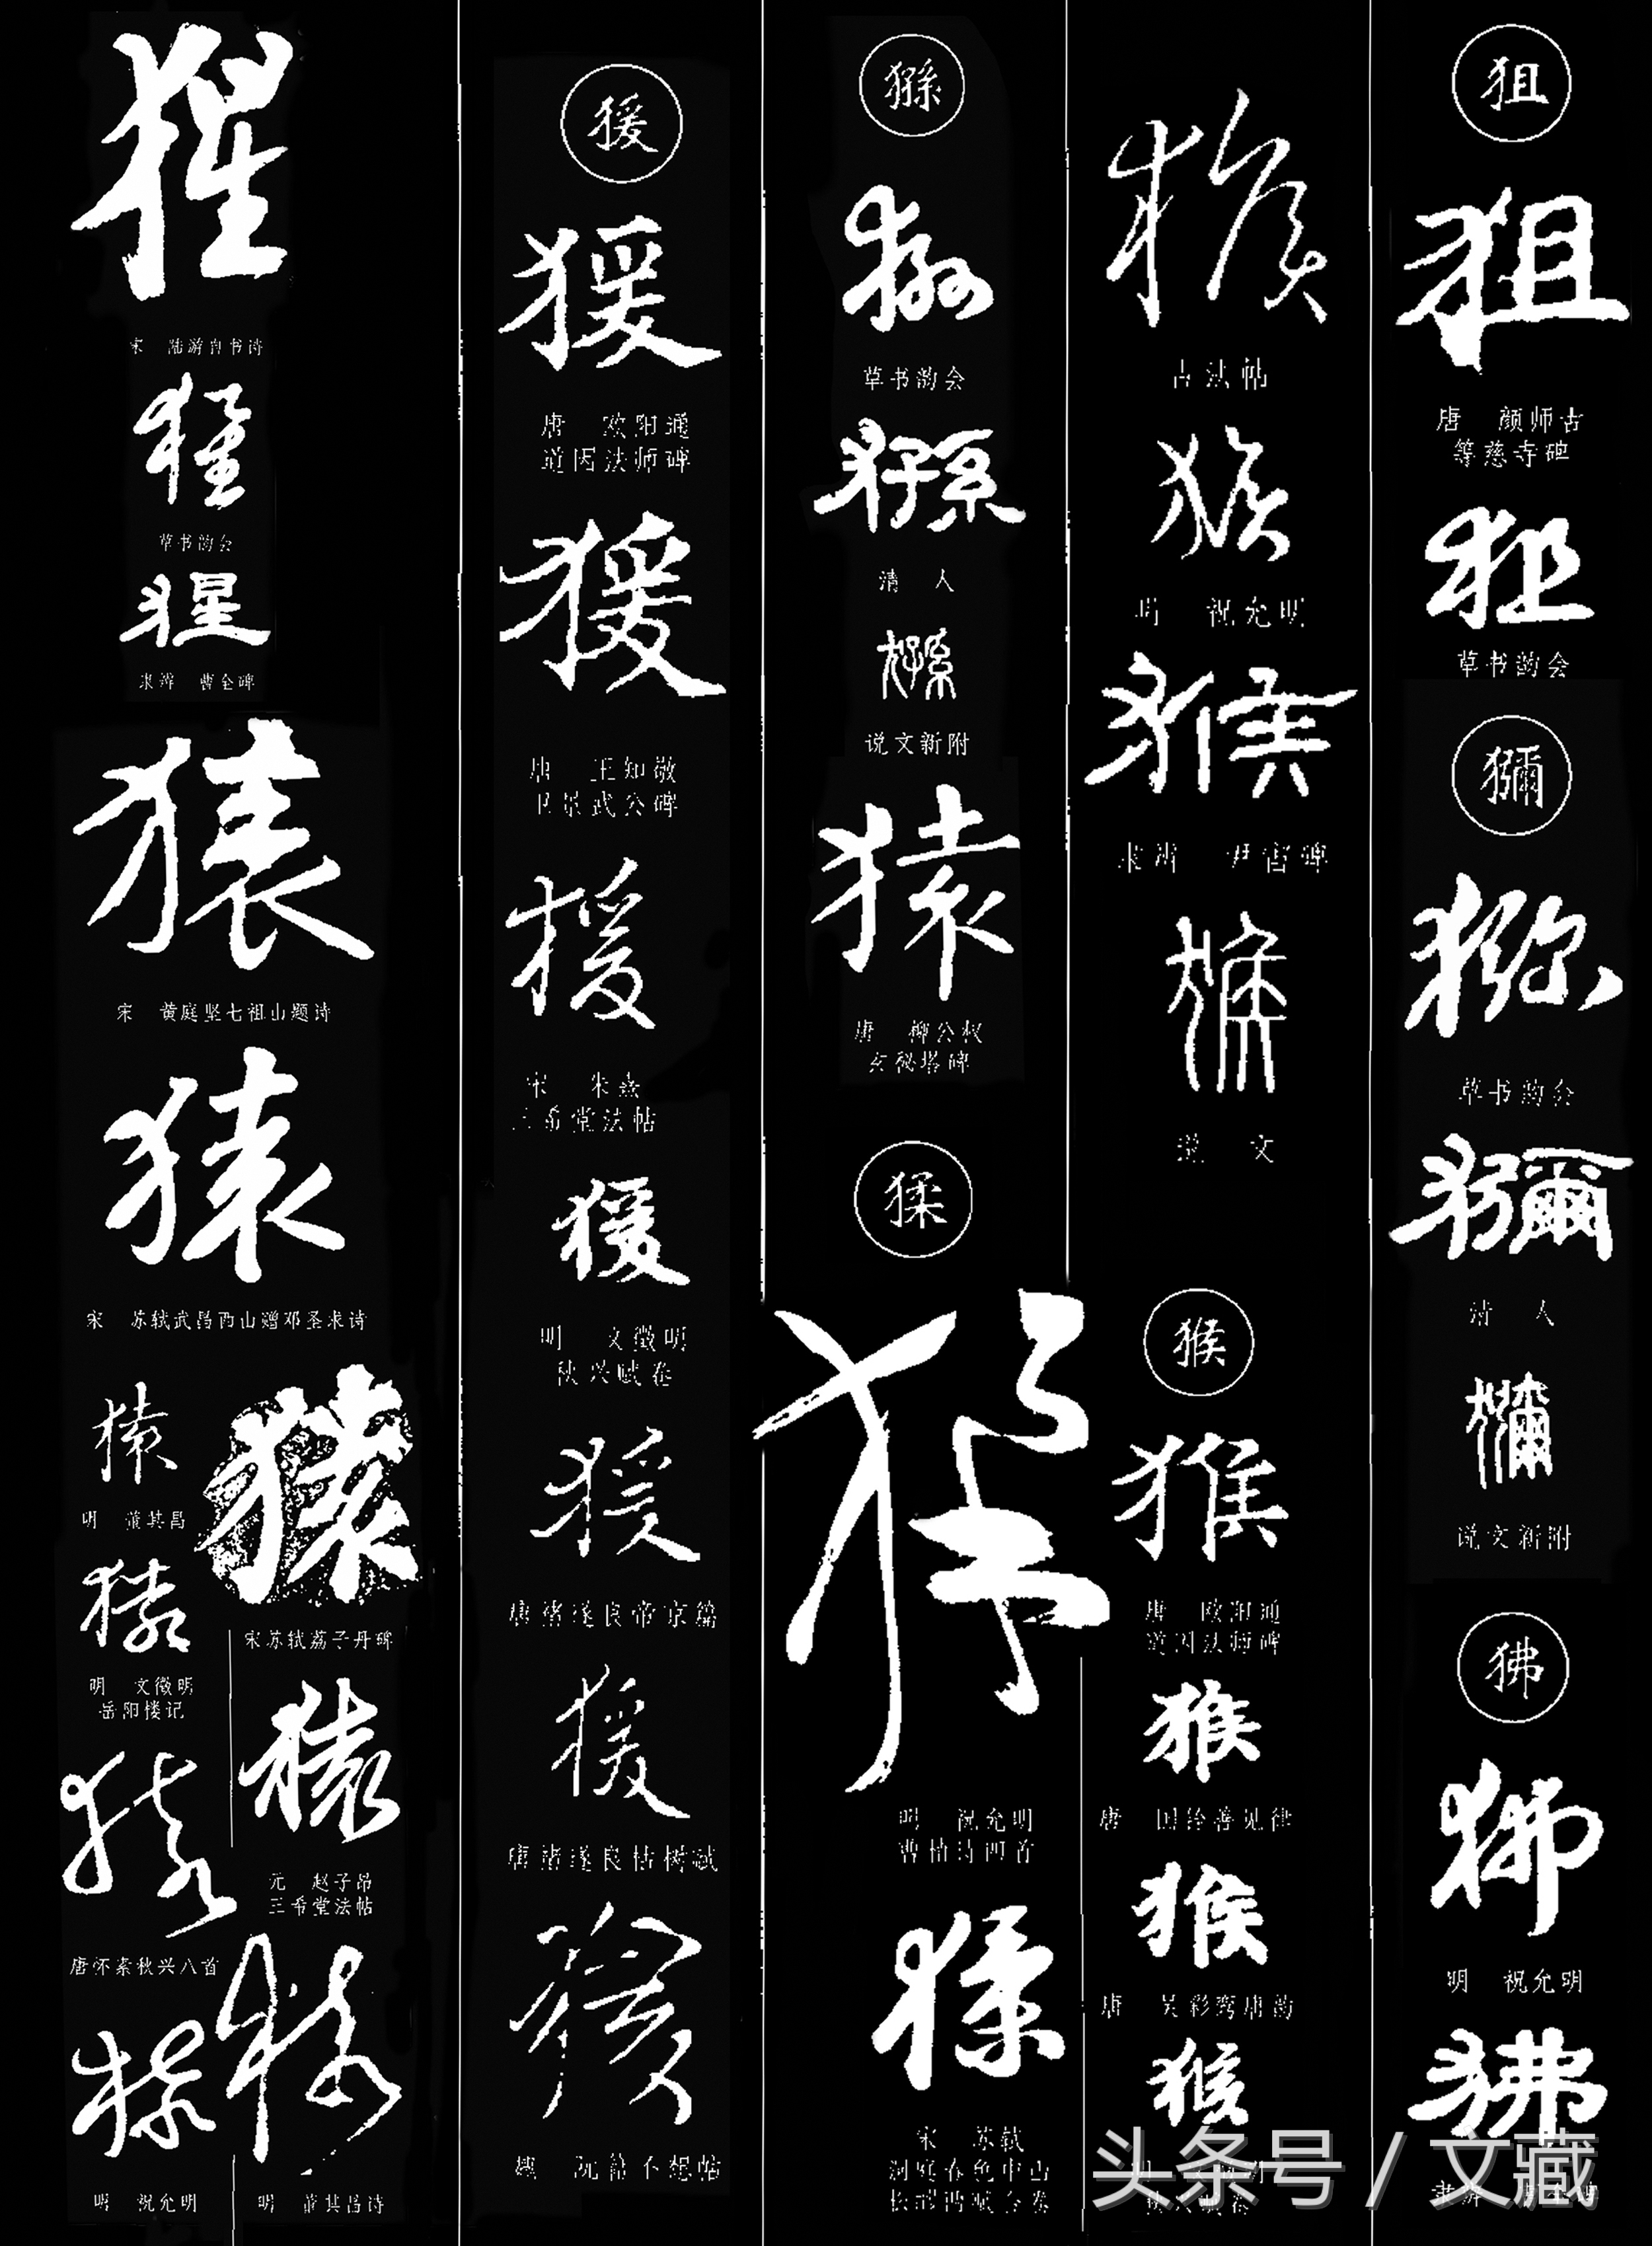 狙
狙
唐 颜师古
等慈寺碑
狙
草书韵会
獼
獼
草书韵会
獼
清 人
獼
说文新附
狒
狒
明 祝允明
狒
猴
古法帖
猴
明 祝允明
猴
隶辨 尹宙碑
猴
说 文
猴
猴
唐 欧阳通
道因法师碑
猴
唐 国诠善见律
猴
唐 吴彩鸾唐韵
猴
猻
猻
草书韵会
猻
清 人
猻
说文新附
猿
唐 柳公权
玄秘塔碑
猱
猱
明 祝允明
曹植诗四首
猱
宋 苏轼
洞庭春色中山
松醪两赋合卷
猨
猨
唐 欧阳通
道因法师碑
猨
唐 王知敬
卫景武公碑
猨
宋 朱熹
三希堂法帖
猨
明 文徵明
秋兴赋卷
猨
唐褚遂良帝京篇
猨
唐褚遂良枯树赋
猨
魏 阮籍不想帖
猩
宋 陆游自书诗
猩
草书韵会
猩
隶辨 曹全碑
猿
宋 黄庭坚七祖山题诗
猿
宋 苏轼武昌西山赠邓圣求诗
猿
宋苏轼荔子丹碑
猿
元 赵子昂
三希堂法帖
猿
明 董其昌诗
猿
明 董其昌
猿
明 文徵明
岳阳楼记
猿
唐怀素秋兴八首
猿
明 祝允明
头条号 / 文藏